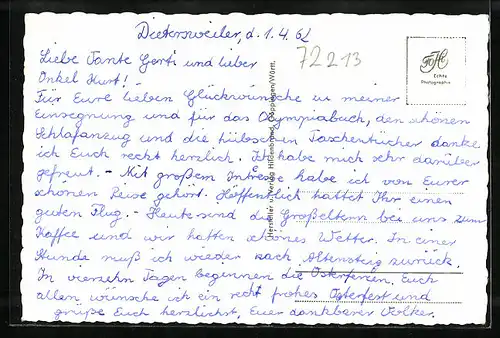 Dietersweiler, d. 1.4.62
72213
Liebe Tante Gerti und lieber
Onkel Kurt! -
Für Eure lieben Glückwünsche zu meiner
Einsegnung und für das Olympiabuch, den schönen
Schlafanzug und die hübschen Taschentücher danke
ich Euch recht herzlich. Ich habe mich sehr darüber
gefreut. - Mit großem Intresse habe ich von Eurer
schönen Reise gehört. Hoffentlich hattet Ihr einen
guten Flug. - Heute sind die Großeltern bei uns zum
Kaffee und wir hatten schönes Wetter. In einer
Stunde muß ich wieder nach Altensteig zurück.
In vierzehn Tagen beginnen die Osterferien. Euch
allen wünsche ich ein recht frohes Osterfest und
grüße Euch herzlichst, Euer dankbarer Volker.
Echte
Photographie
Hersteller u. Verlag Hildenbrand, Göppingen/Württ.